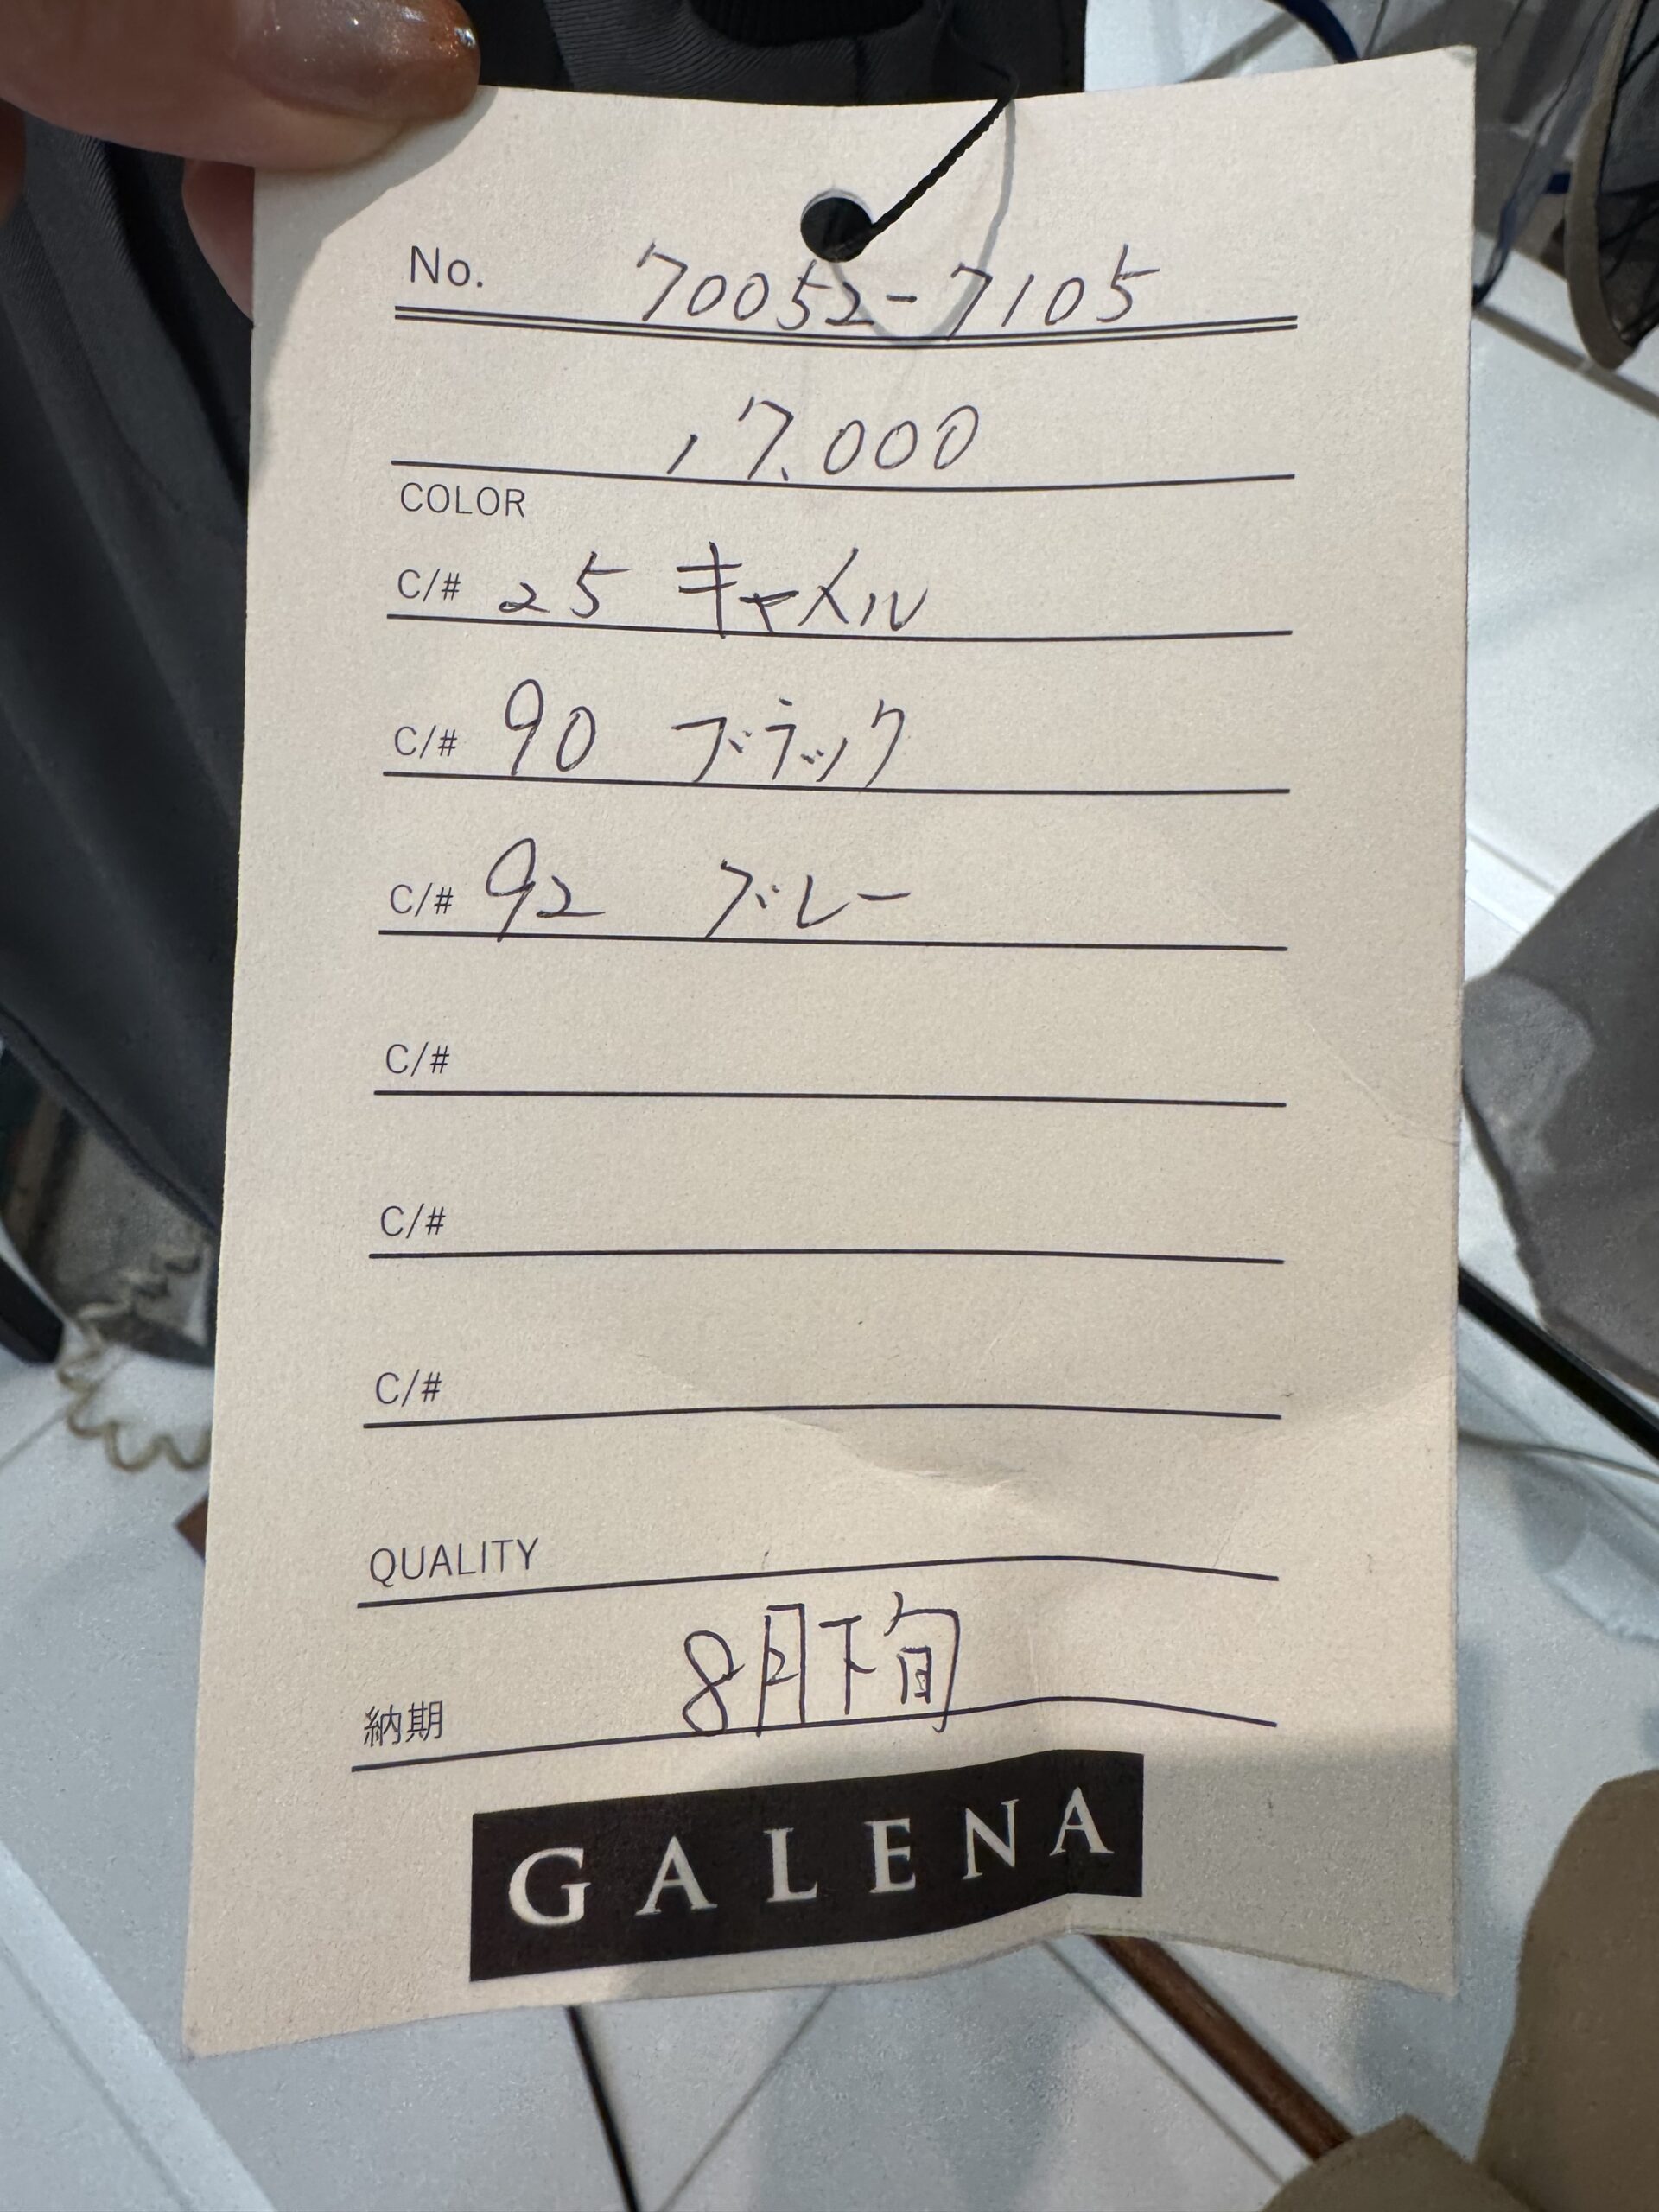 No. 70052-7105
17.000
COLOR
C/# 25 キャメル
C/# 90 ブラック
C/# 92 グレー
C/#
C/#
C/#
QUALITY
納期 8月下旬
GALENA